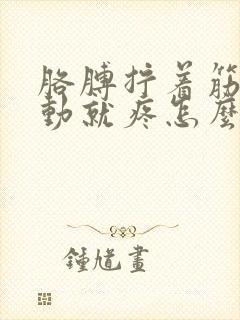 胳膊拧着筋
動就疼怎麼
鍾馗畫